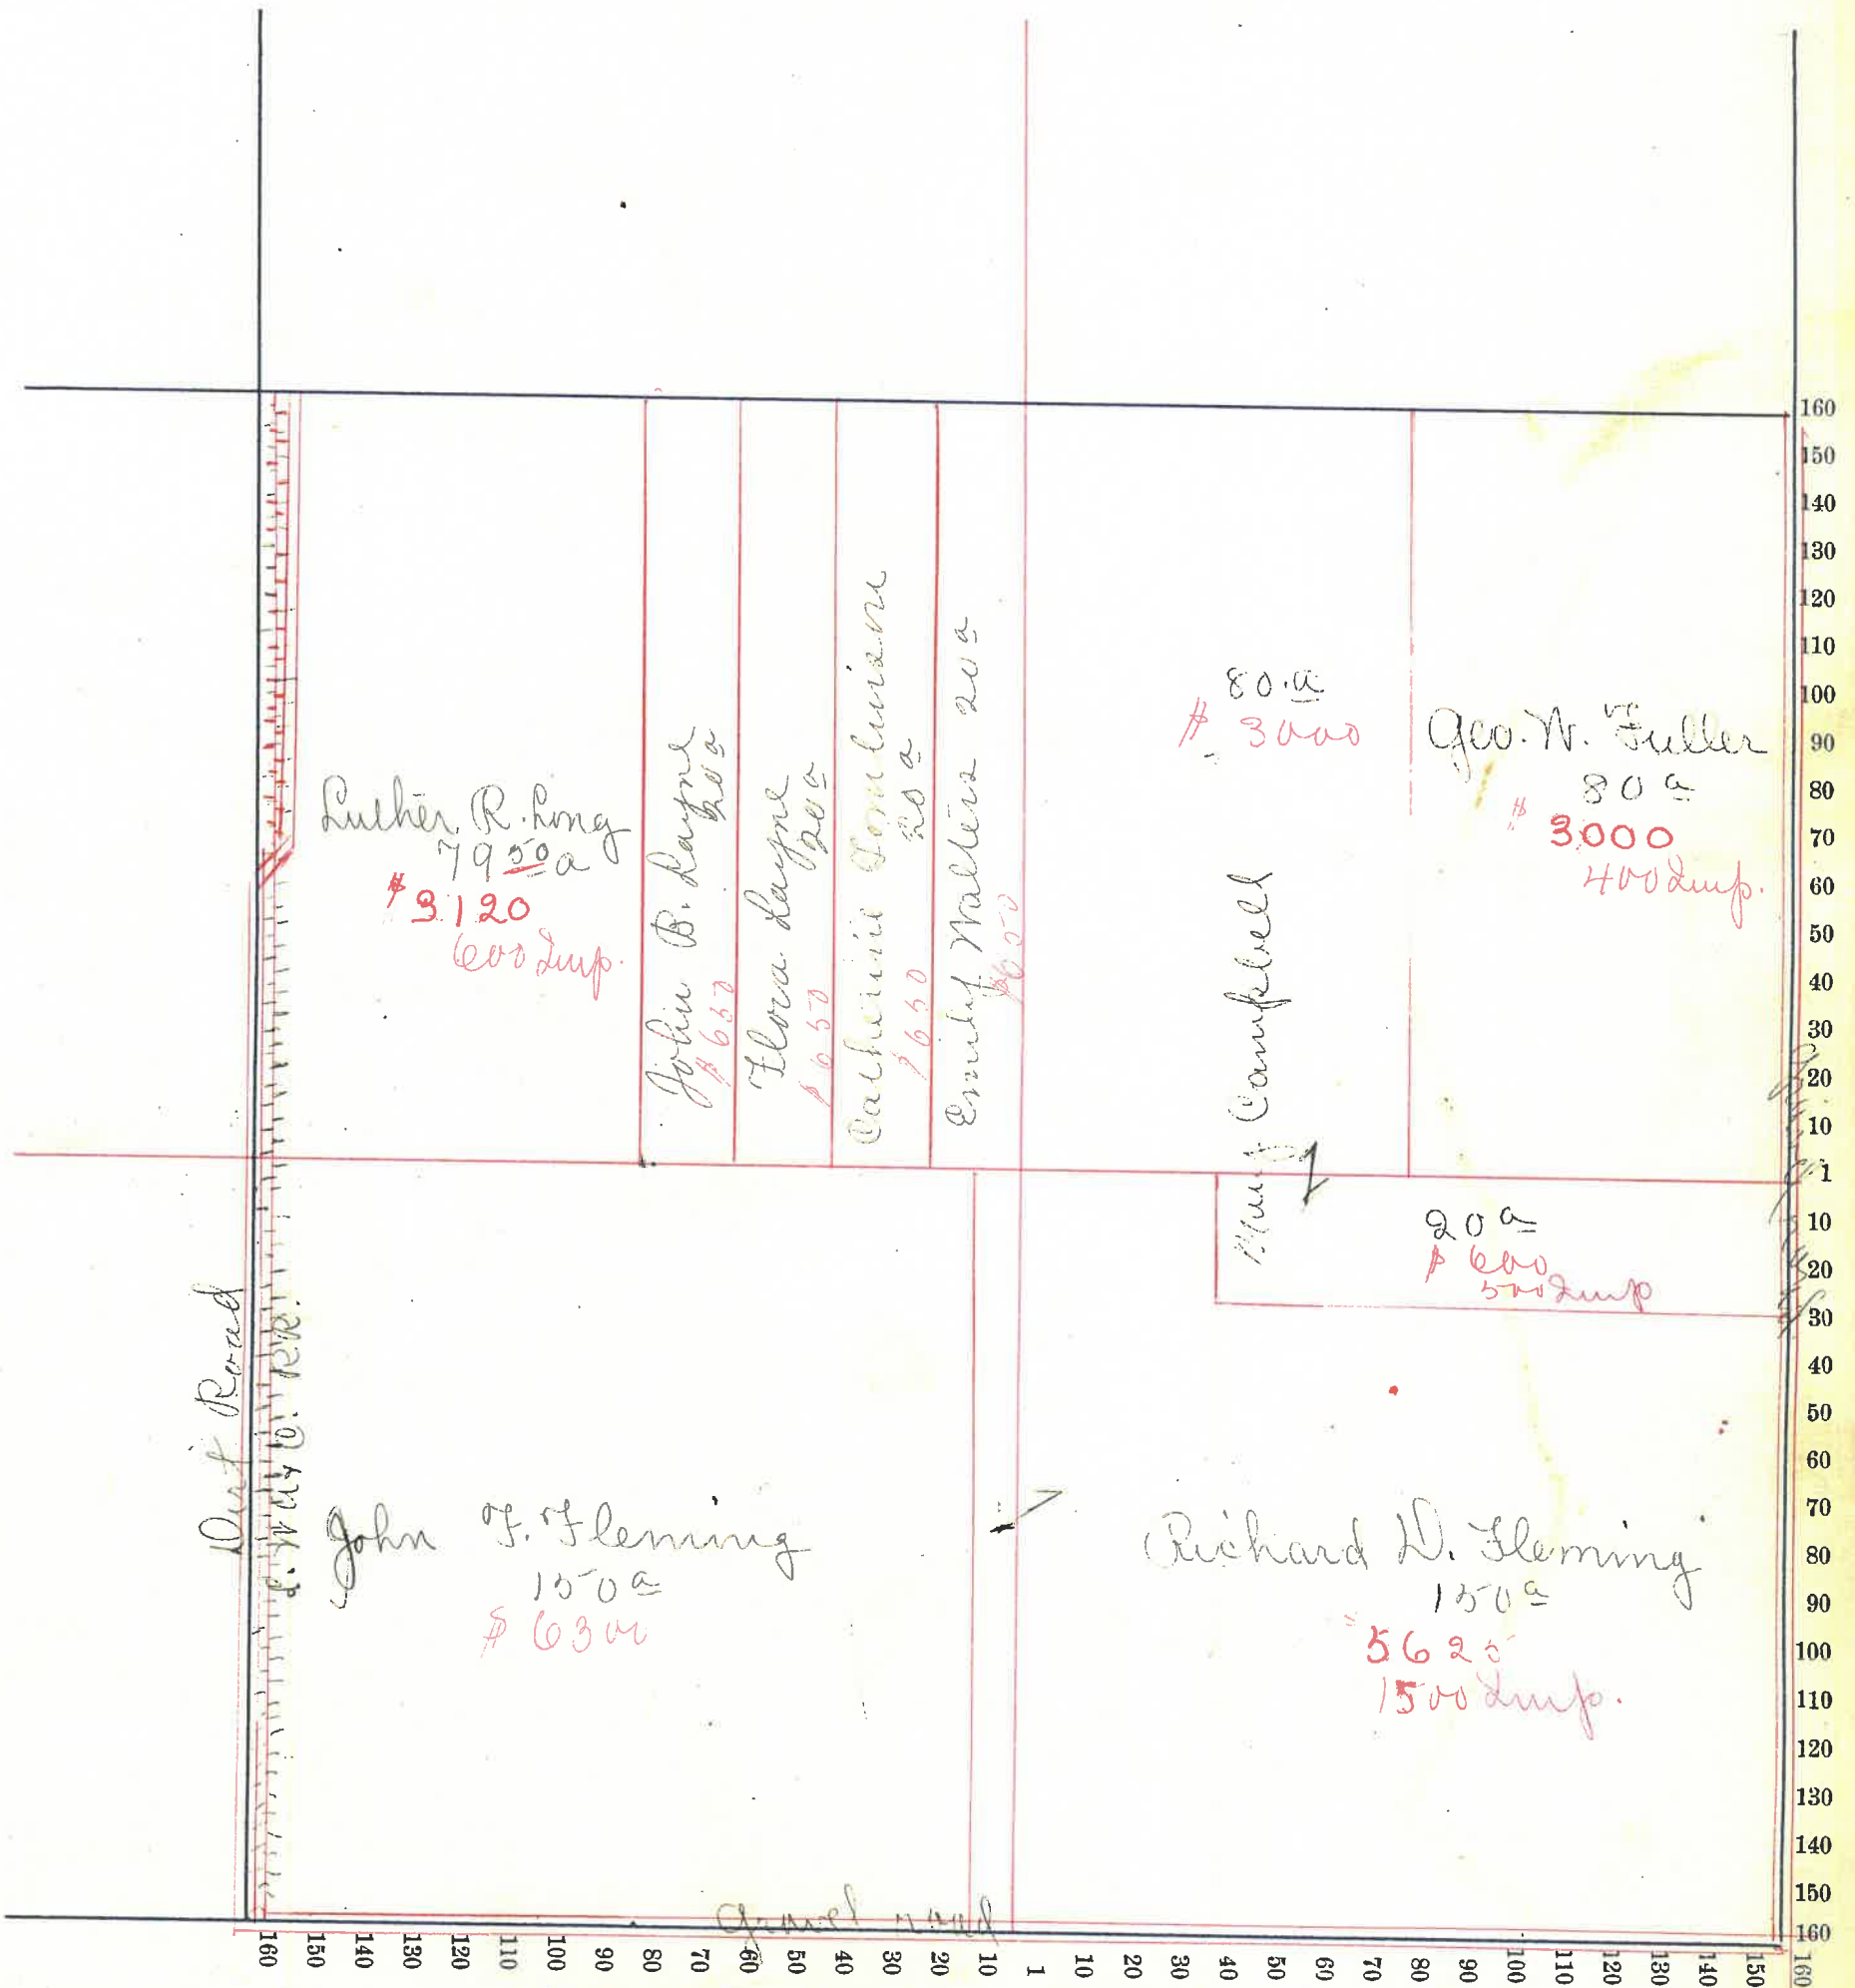 Luther. R. Long
79 50 a
$3120
600 Imp.
John B. Layne
20 a
$650
Flora Layne
20 a
$650
Catherine Tomlinson
20 a
$650
Emily Walters 20 a
$650
80. a
$3000
Campbell
Geo. W. Fuller
80 a
$3000
400 Imp.
20 a
$600
500 Imp
Dirt Road
R.R.
John F. Fleming
150 a
$6300
Richard D. Fleming
150 a
5625
1500 Imp.
Gravel road
160
150
140
130
120
110
100
90
80
70
60
50
40
30
20
10
1
10
20
30
40
50
60
70
80
90
100
110
120
130
140
150
160
160 150 140 130 120 110 100 90 80 70 60 50 40 30 20 10 1 10 20 30 40 50 60 70 80 90 100 110 120 130 140 150 160